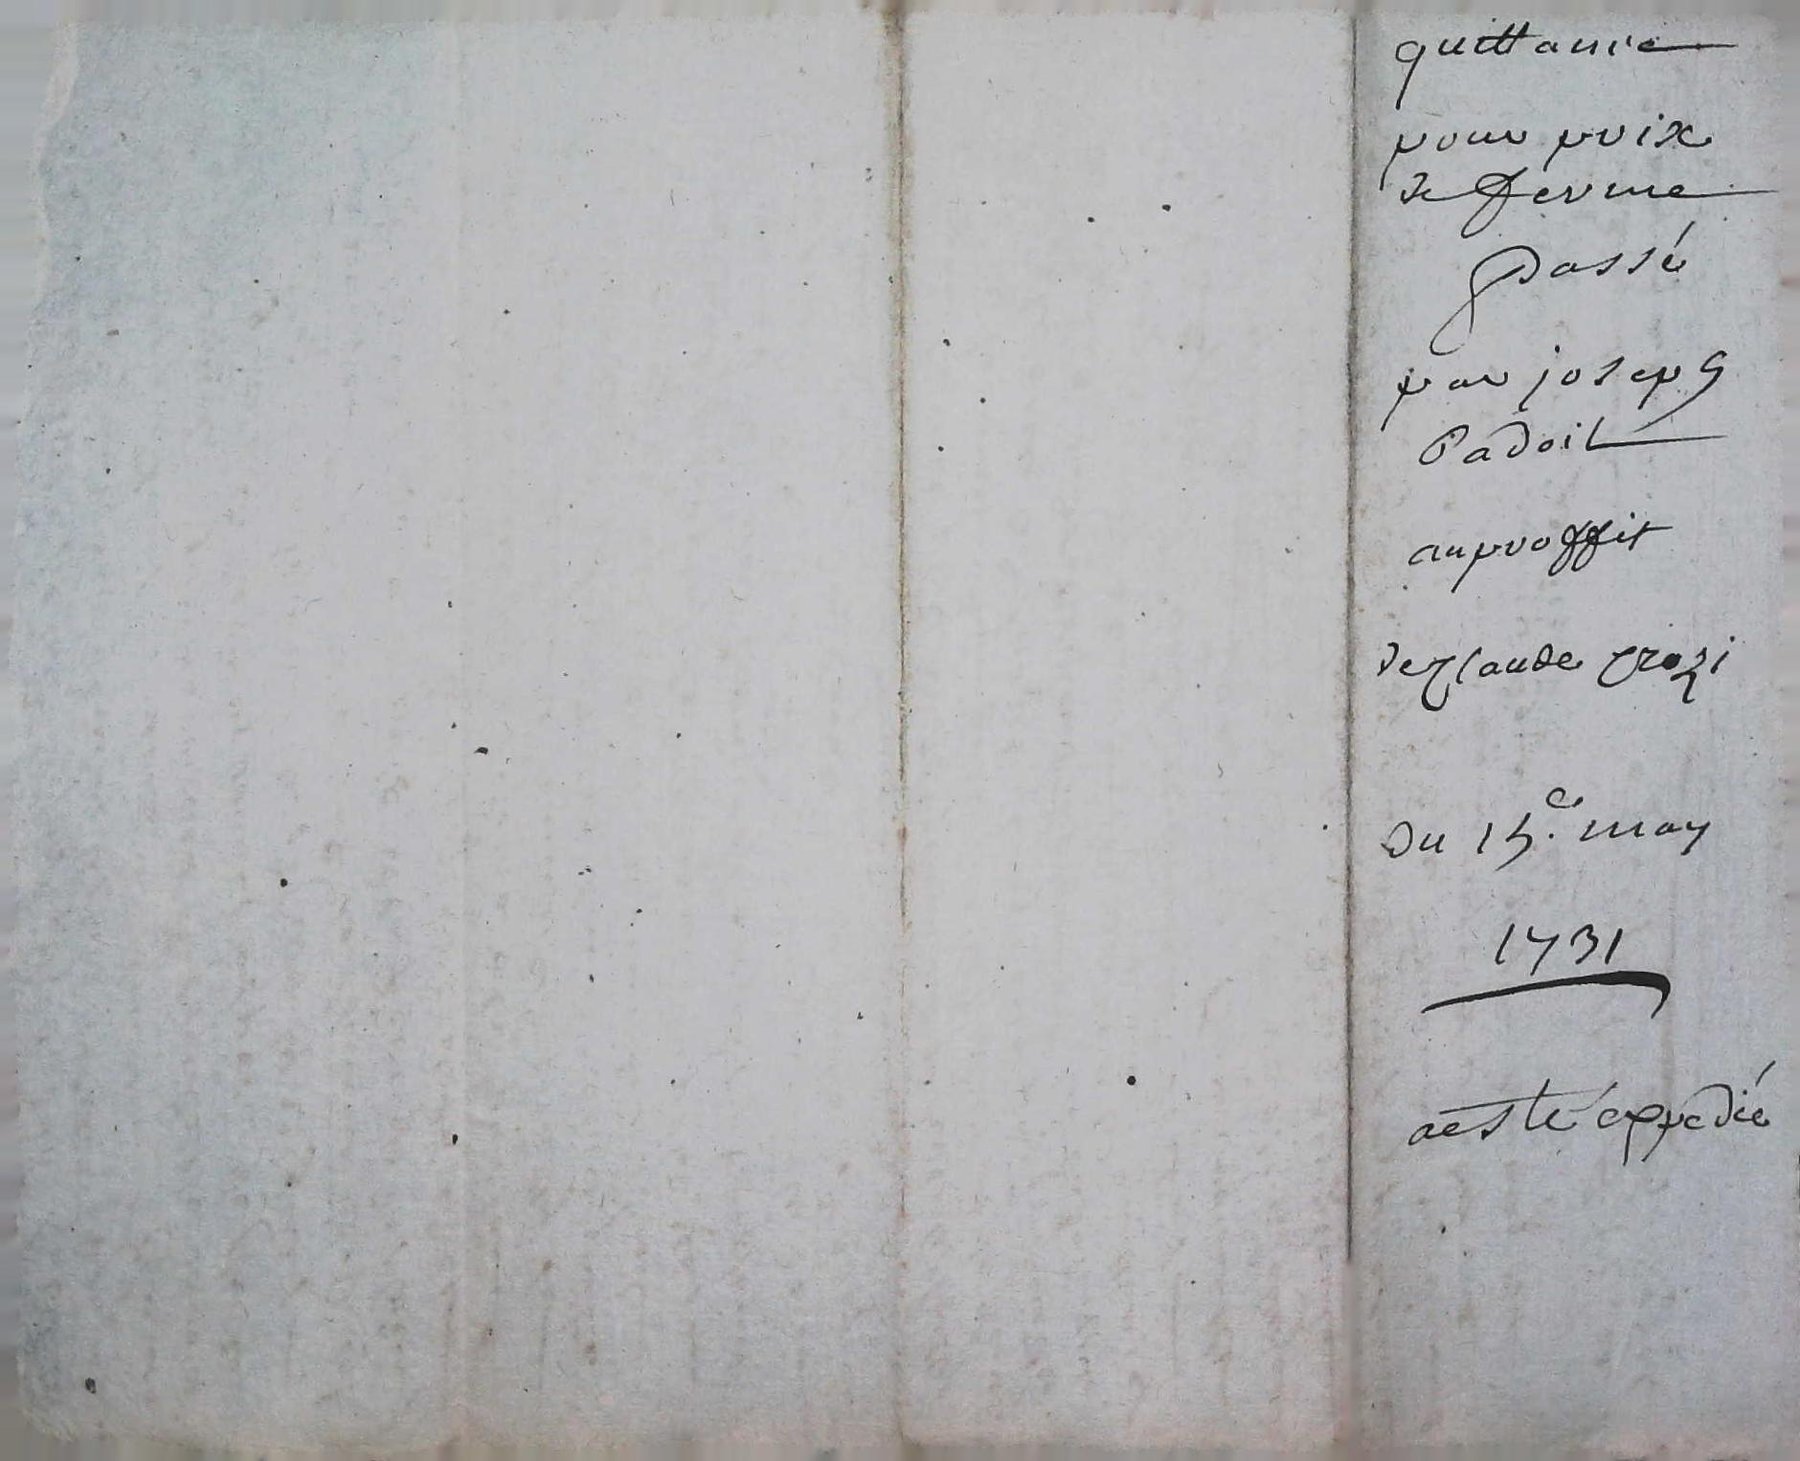 quittance
pour prix
de ferme
passé
par joseph
Padoil
au proffit
de Claude Crozi
du 15.e may
1731
a esté expedié